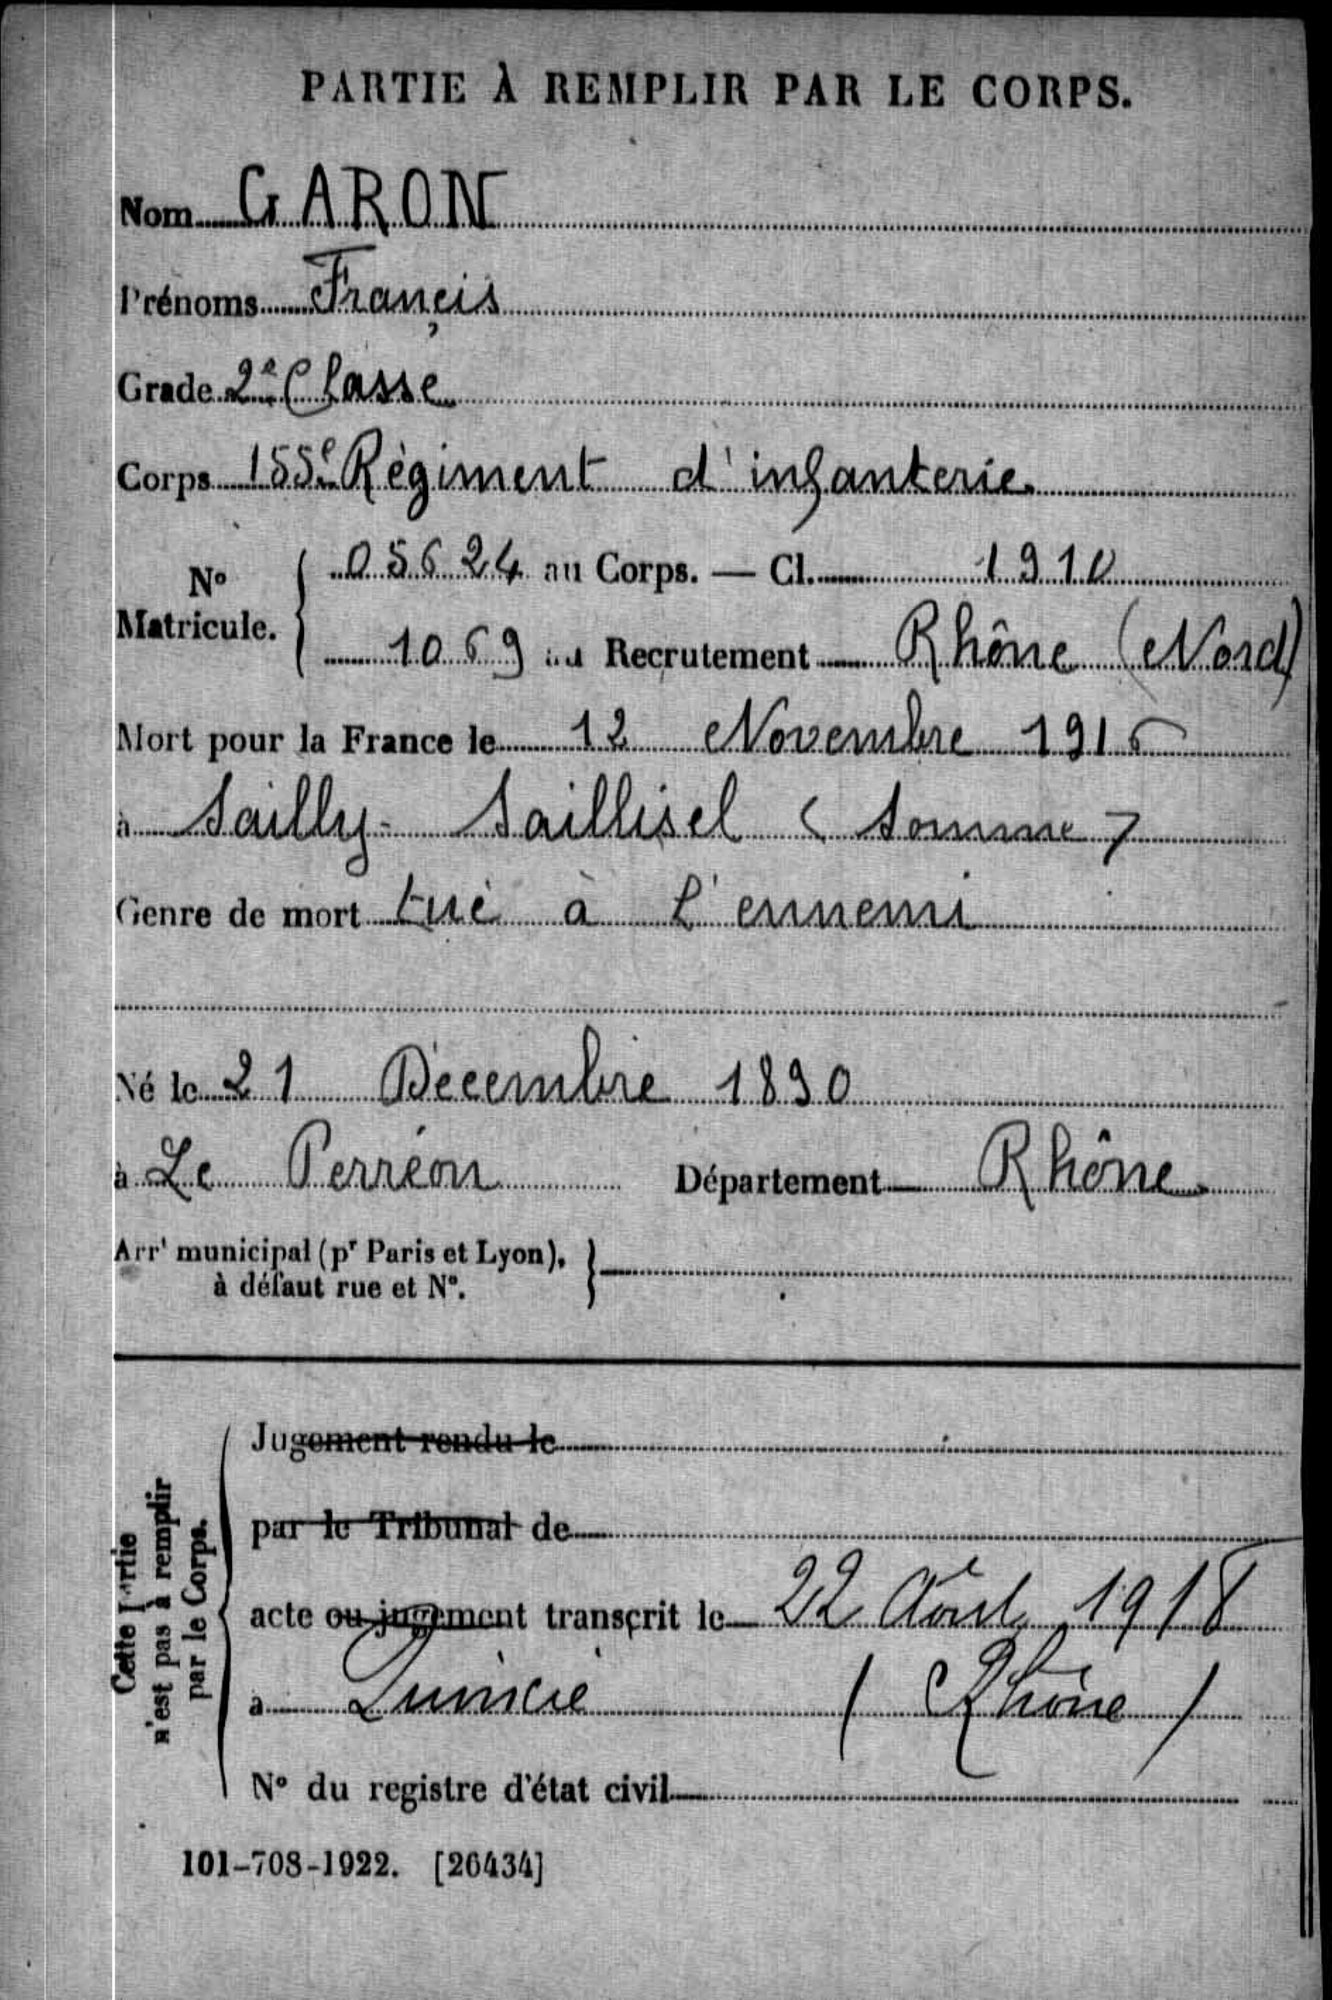 PARTIE À REMPLIR PAR LE CORPS.
Nom GARON
Prénoms Françis
Grade 2e Classe
Corps 155e Régiment d'infanterie
No Matricule. 05624 au Corps. — Cl. 1910
1069 au Recrutement Rhône (Nord)
Mort pour la France le 12 Novembre 1916
à Sailly-Saillisel (Somme)
Genre de mort tué à l'ennemi
Né le 21 Décembre 1890
à Le Perréon Département Rhône
Arrt municipal (pr Paris et Lyon),
à défaut rue et No.
Cette Partie
n'est pas à remplir
par le Corps.
Jugement rendu le
par le Tribunal de
acte ou jugement transcrit le 22 Août 1918
à Quincié (Rhône)
No du registre d'état civil
101-708-1922. [26434]